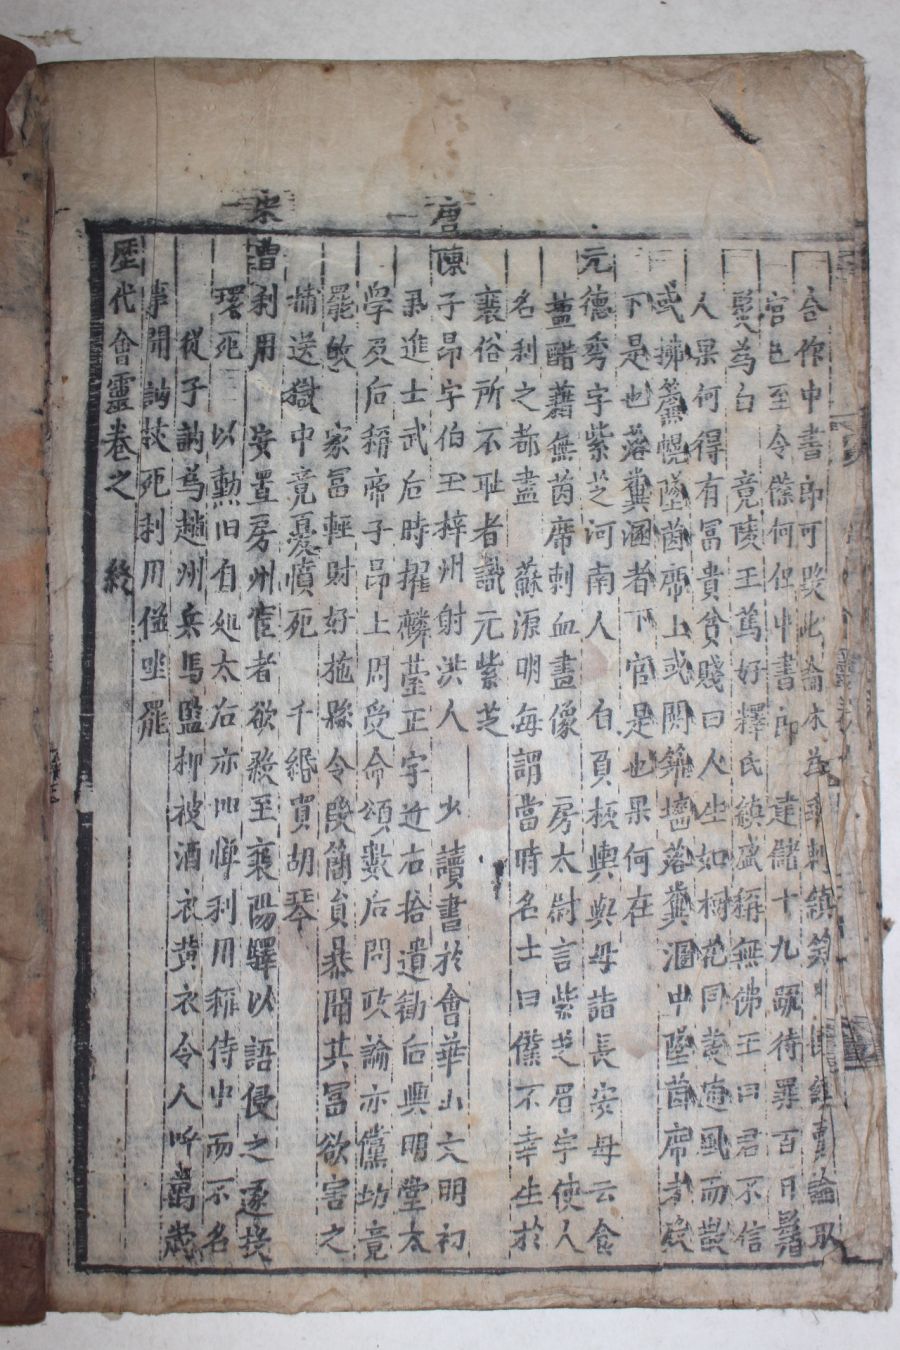 合作中書郎可笑此論 鎮 經賣論取
官已至令僕何但中書郎 建儲十九 待罪百日鬚
髮為白 竟陵王篤好釋氏縝盛稱無佛王曰君不信
人果何得有冨貴貧賤曰人生如樹花同發 風而散
或拂簾幌墜茵席上或關籬墻落糞溷中墜茵席者殿
下是也落糞溷者下官是也果何在
元德秀字紫芝河南人 自負板輿與母詣長安母云食
虀醋藉無茵席刺血畫像 房太尉言紫芝眉宇使人
名利之都盡 蘇源明每謂當時名士曰僕不幸生於
衰俗所不耻者識元紫芝
唐
陳子昂字伯玉梓州射洪人 少讀書於會華山文明初
擧進士武后時擢麟䑓正字近右拾遺勸后興明堂太
學及后稱帝子昂上周受命頌數后問政論亦儻切竟
罷政 家冨輕財好施縣令段簡貪暴聞其冨欲害之
捕送獄中竟憂憤死 千緡買胡琴
宋
曹利用 安置房州宦者欲殺至襄陽驛以語侵之遂投
環死 以勳旧自処太后亦加憚利用稱侍中而不名
從子訥為趙州兵馬監押被酒衣黃衣令人呼萬歲
事聞訥杖死利用 坐罷
歷代會靈卷之 終